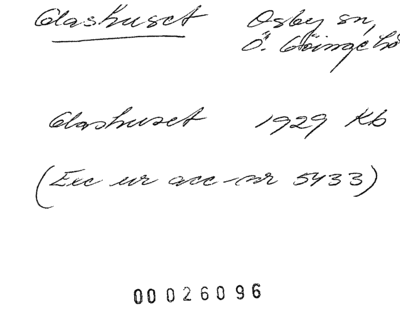 Glashuset Osby sn,
Ö. Göinge hd
Glashuset 1929 Kb
(Exc ur acc-nr 5433)
00026096